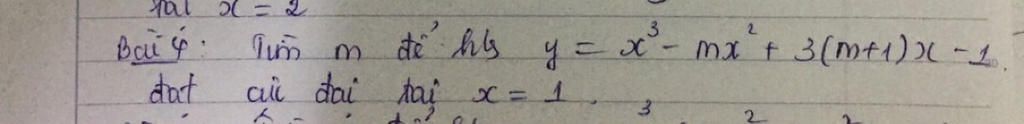 tại x = 2
Bài 4: Tìm m để hs y = x³ - mx² + 3(m+1)x - 1.
đạt cực đại tại x = 1.